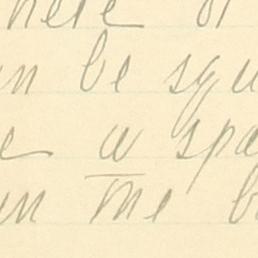 here of
n be squ
e a spa
in the b